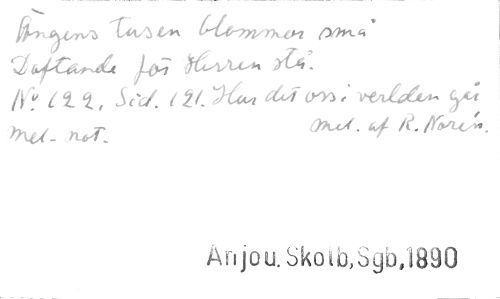 Ängens tusen blommor små
Doftande för Herren stå.
No 122, Sid. 121. Hur det oss i verlden går
Mel. not. Mel. af R. Norén.
Anjou. Skolb, Sgb, 1890